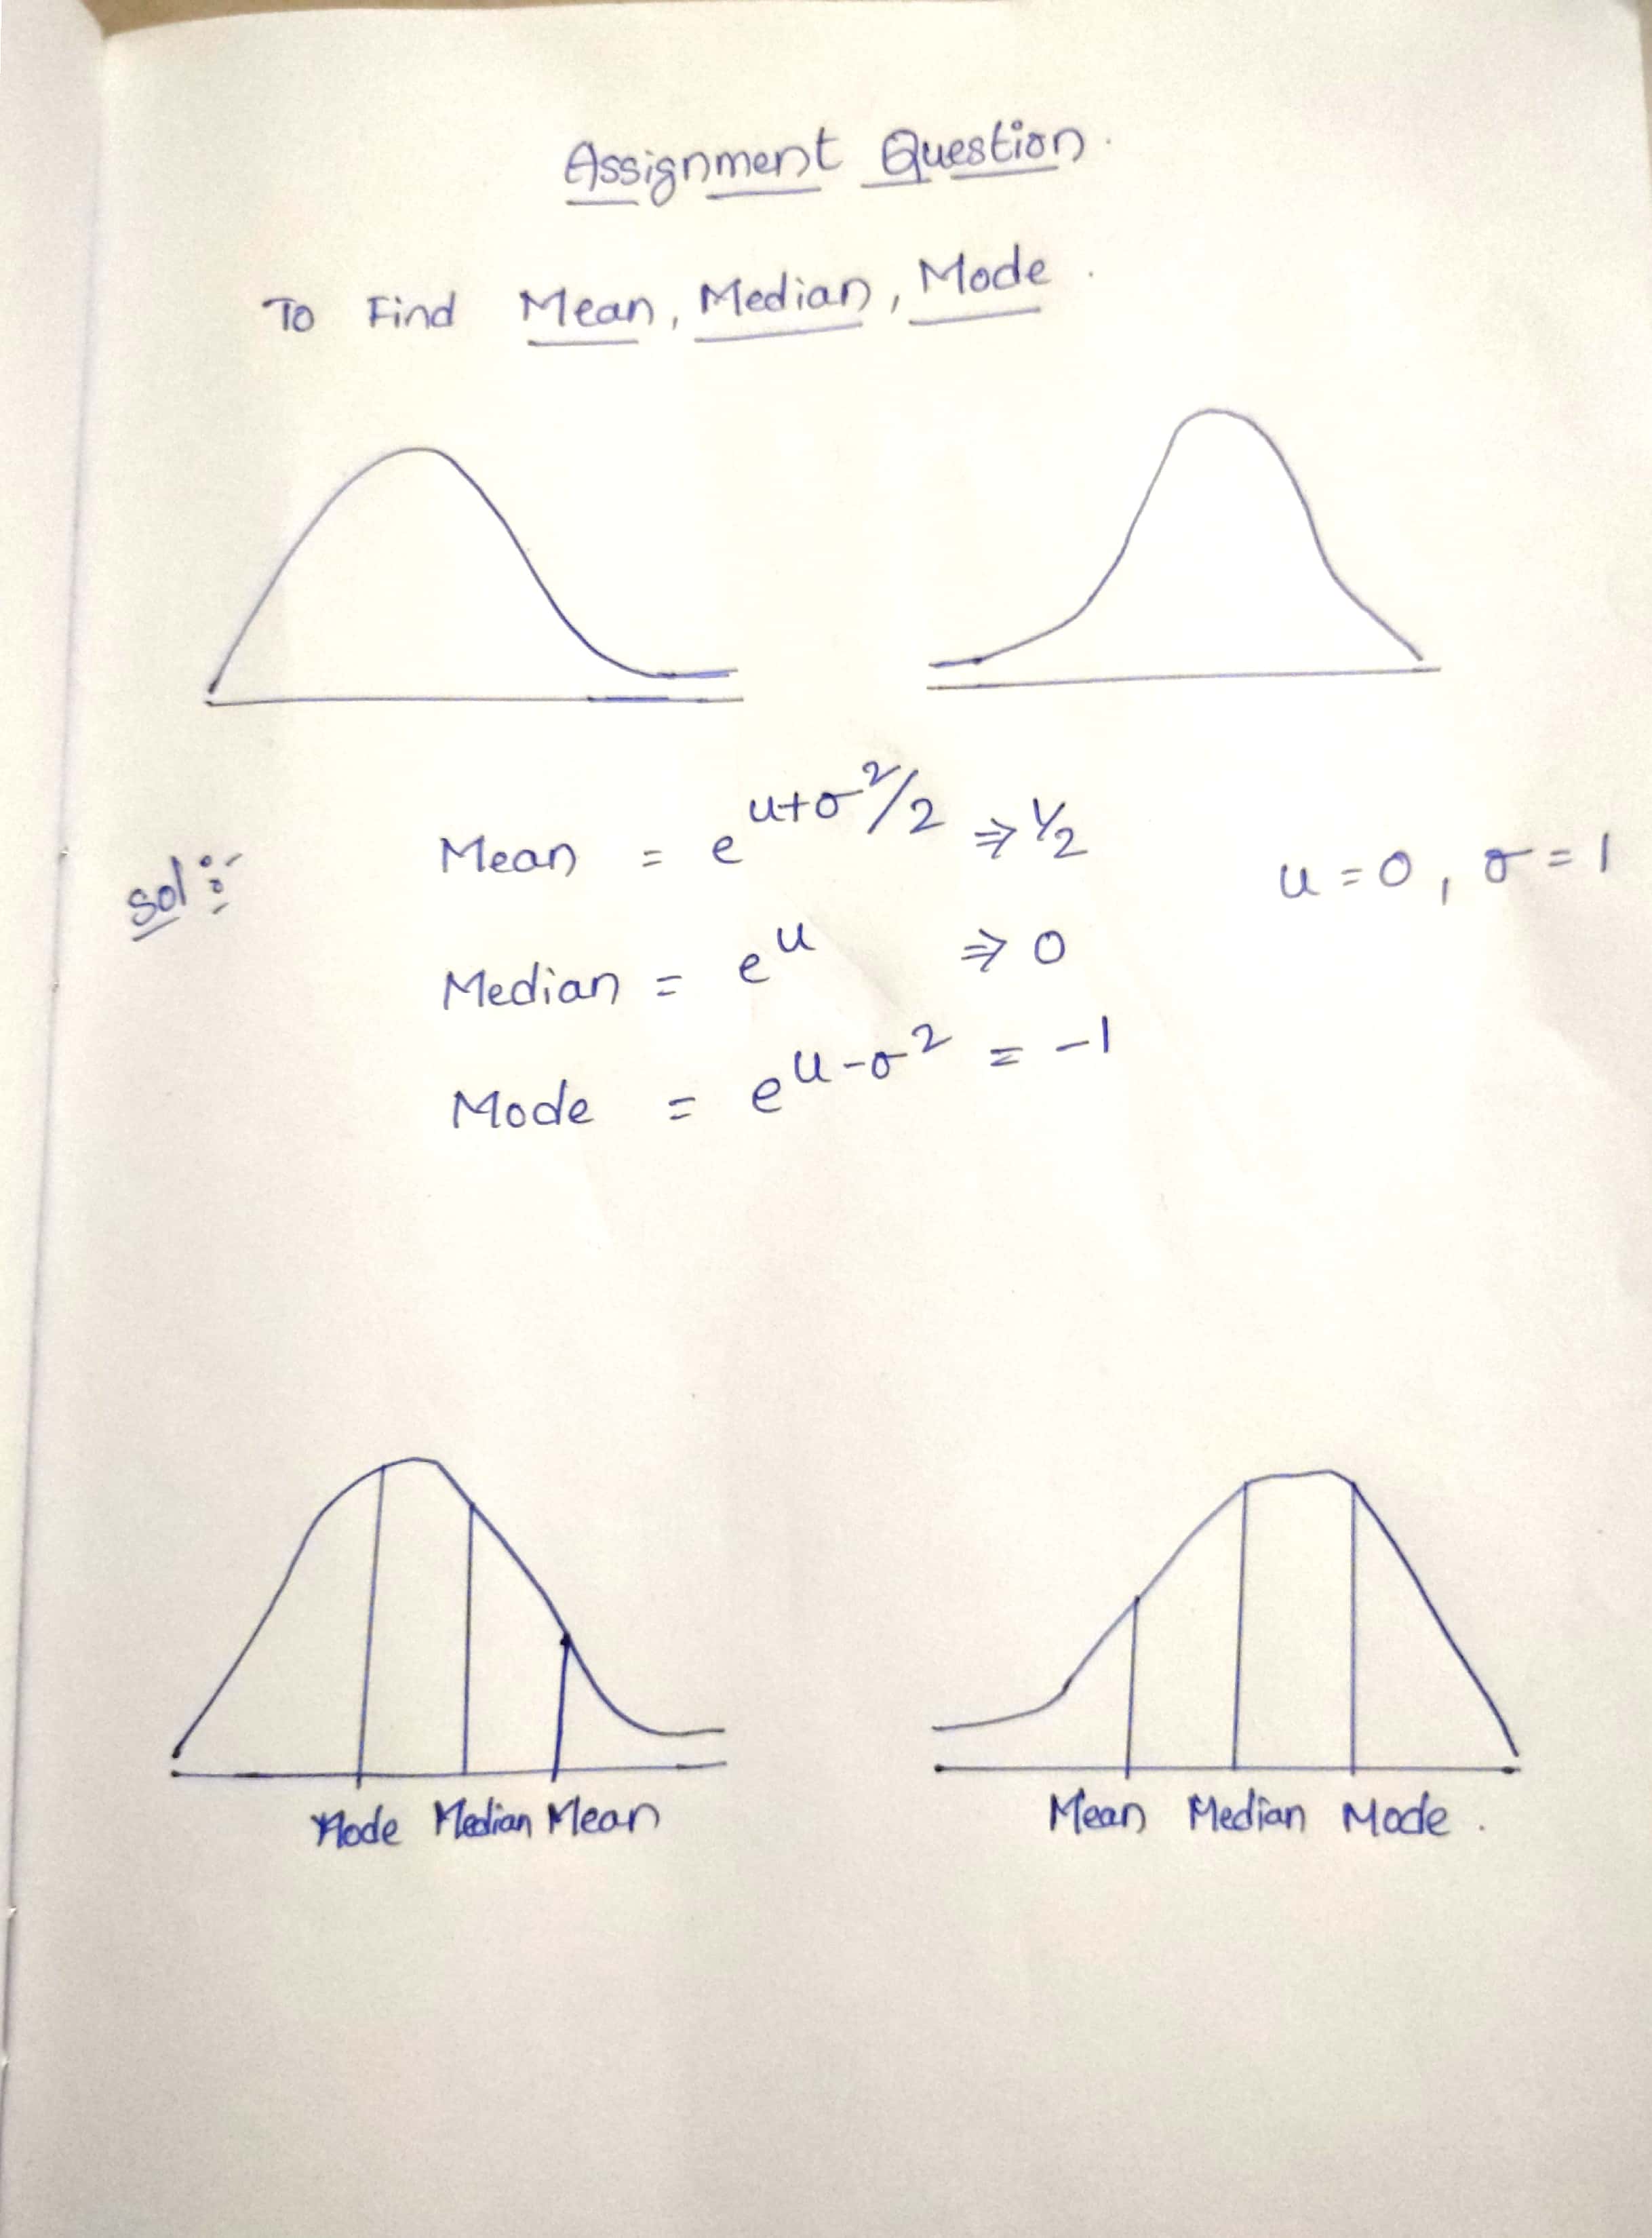 Assignment Question.
To Find Mean, Median, Mode.
Sol:- Mean = e^{u+σ²/2} ⇒ 1/2 u=0, σ=1
Median = e^u ⇒ 0
Mode = e^{u-σ²} = -1
Mode Median Mean
Mean Median Mode.